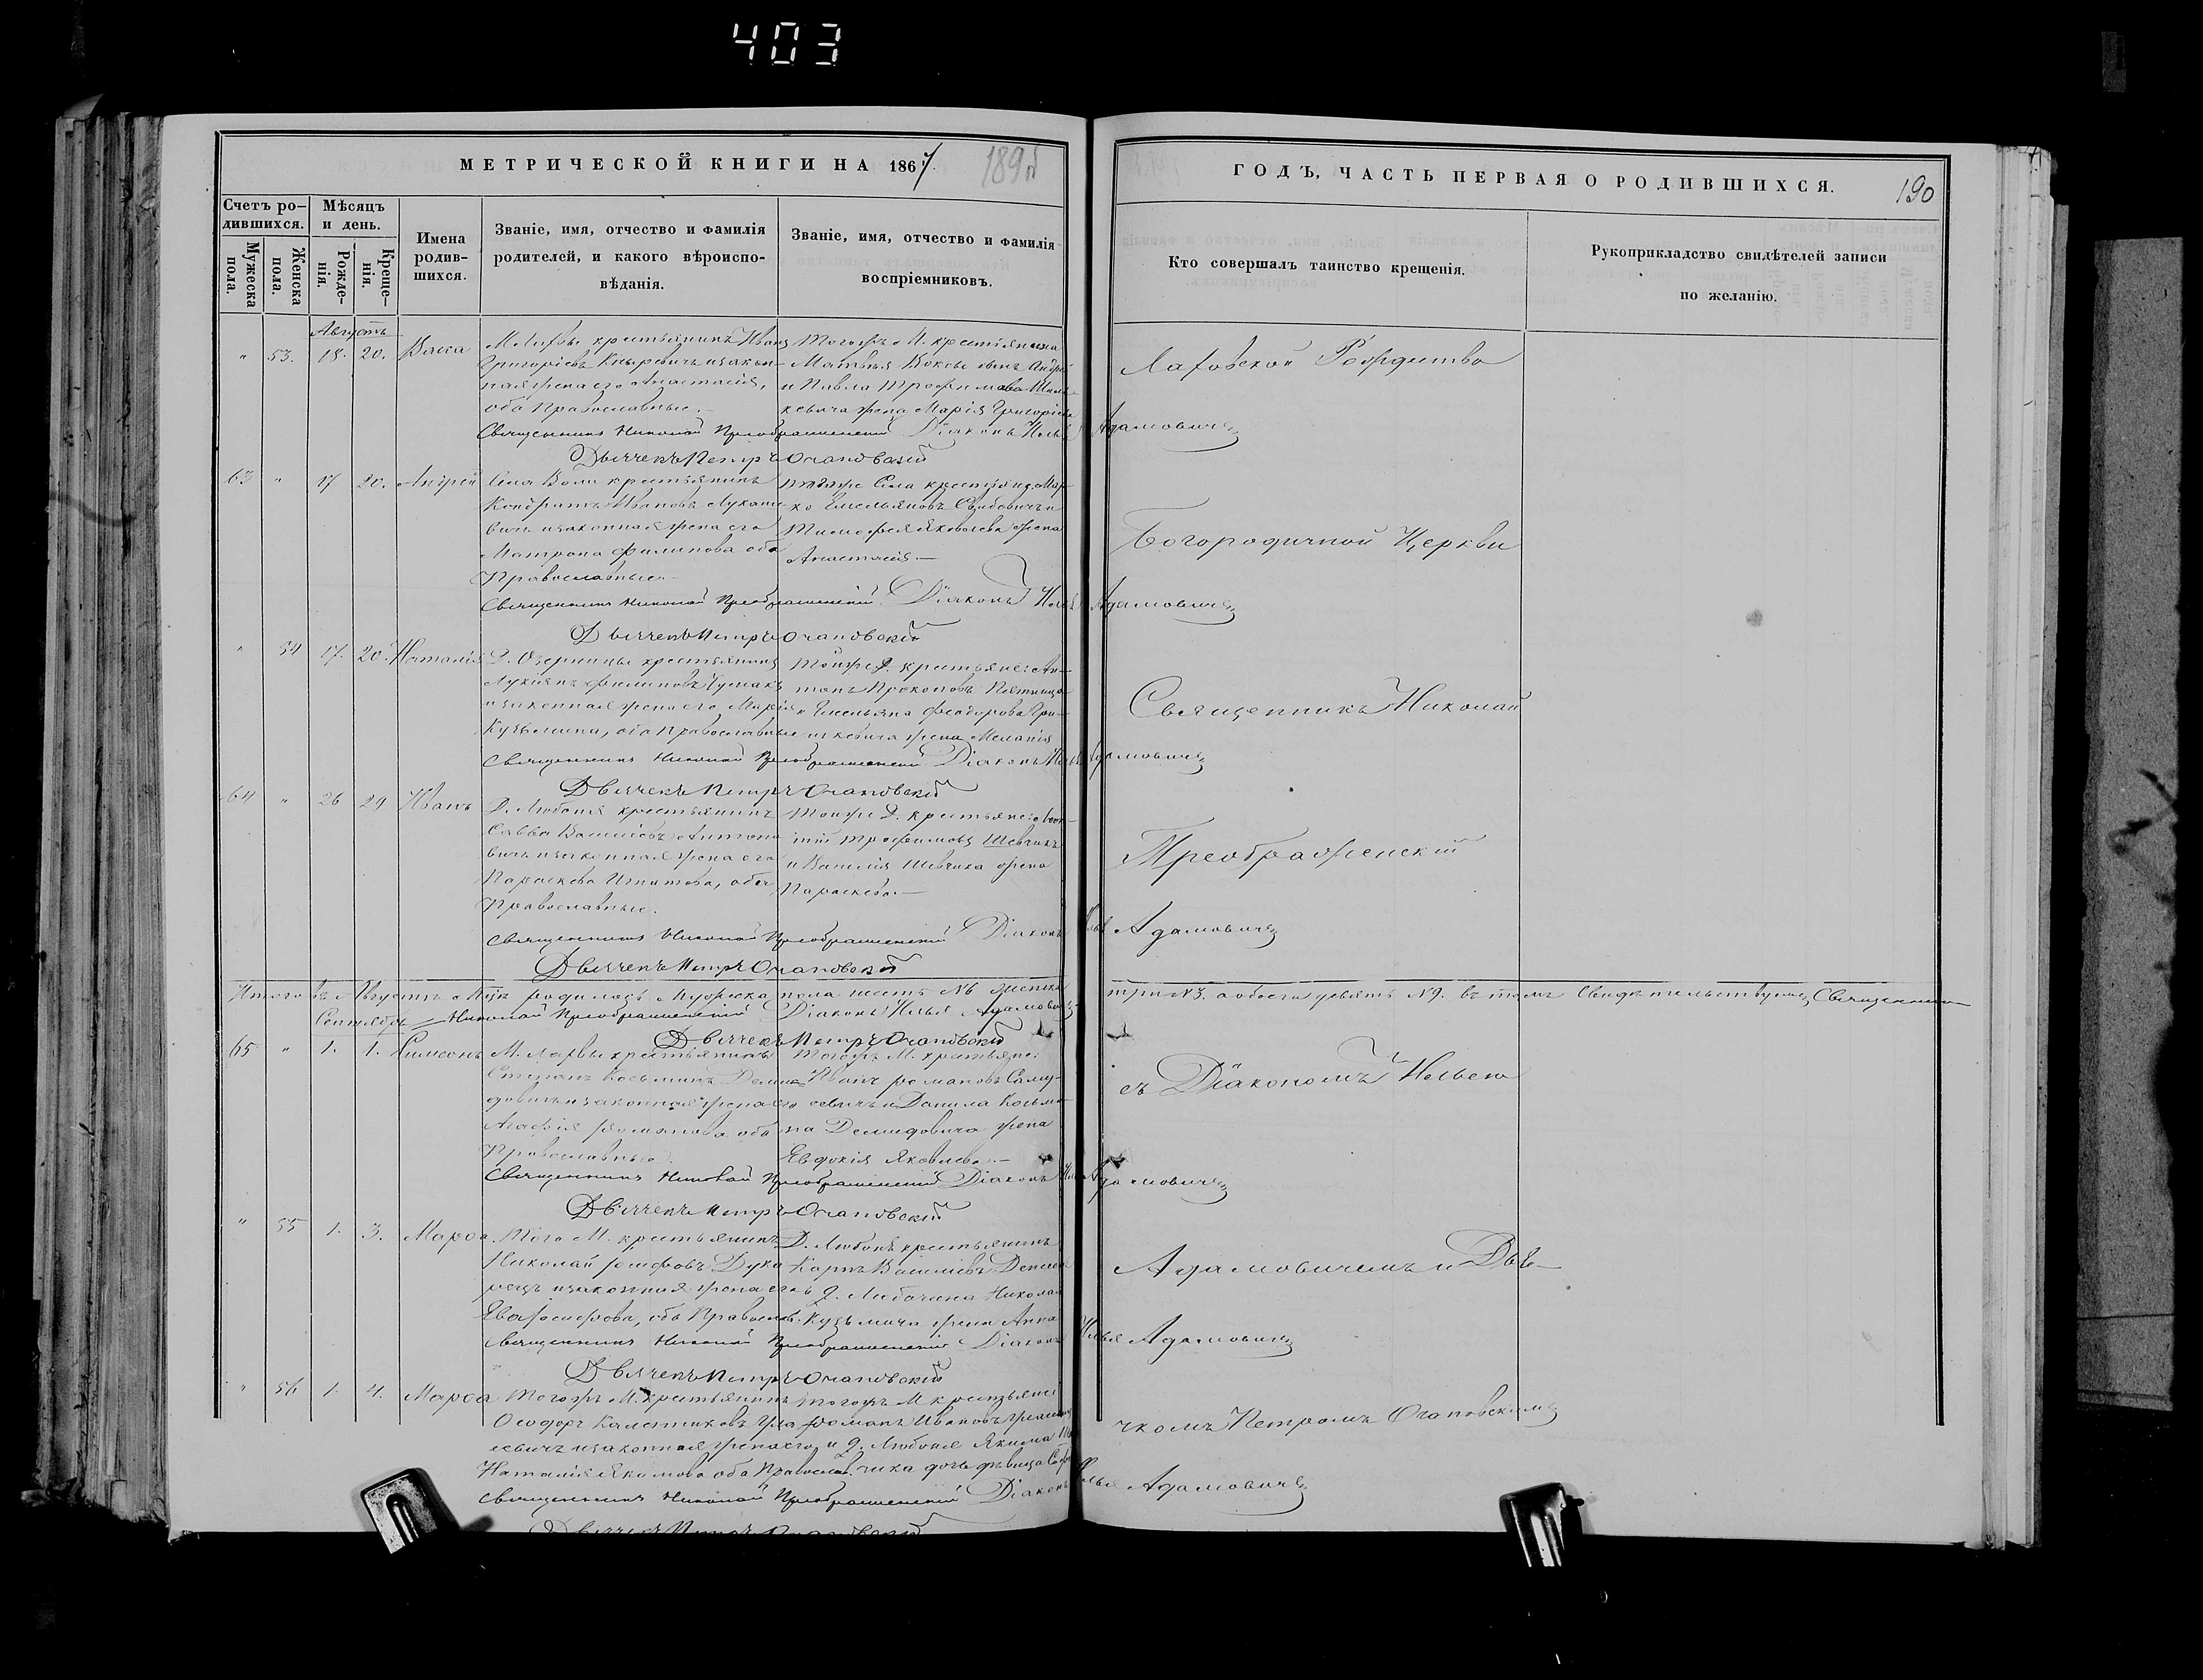 403
МЕТРИЧЕСКОЙ КНИГИ НА 1867.
189 об
ГОДЪ, ЧАСТЬ ПЕРВАЯ О РОДИВШИХСЯ.
190
Счетъ ро-
дившихся.
Мѣсяцъ
и день.
Мужеска
пола.
Женска
пола.
Рожде-
нія.
Креще-
нія.
Имена
родив-
шихся.
Званіе, имя, отчество и фамилія
родителей, и какого вѣроиспо-
вѣданія.
Званіе, имя, отчество и фамилія
воспріемниковъ.
Кто совершалъ таинство крещенія.
Рукоприкладство свидѣтелей записи
по желанію.
Августъ
" 53. 18. 20. Васса
крестьянинъ Иванъ
Григоріевъ и закон-
ная жена его Анастасія,
оба Православные.
Тогожъ М. крестьянина
Матвѣя сынъ Андрей
и Павла Трофимова
жена Марія Григорьева
Лаховской Рождество
Священникъ Николай Преображенскій Діаконъ Илья Адамовичъ
Дьячекъ Петръ Очаповскій
63 " 17 20. Андрей
Села Воли крестьянинъ
Кондратъ Ивановъ Лукаше-
вичъ и законная жена его
Матрона Филипова оба
Православные.
тогоже Села крестьяне: Мар-
ко Емельяновъ и
Тимофея Яковлева жена
Анастасія.
Богородичной Церкви
Священникъ Николай Преображенскій Діаконъ Илья Адамовичъ
Дьячекъ Петръ Очаповскій
" 54 17. 20. Наталія
Д. Озерницы крестьянинъ
Лукіянъ Филиповъ Чумакъ
и законная жена его Марія
Кузьмина, оба Православные
Тойже Д. крестьяне: Ан-
тонъ Прокоповъ Пятница
и Емельяна Феодорова Гри-
шкевича жена Меланія
Священникъ Николай
Священникъ Николай Преображенскій Діаконъ Илья Адамовичъ
Дьячекъ Петръ Очаповскій
64 " 26 29 Иванъ
Д. Любаня крестьянинъ
Савва Василіевъ Антоно-
вичъ и законная жена его
Параскева Игнатова, оба
Православные.
Тойже Д. крестьяне:
Трофимовъ Шевчикъ
и Василія Шевчика жена
Параскева.
Преображенскій
Священникъ Николай Преображенскій Діаконъ Илья Адамовичъ
Дьячекъ Петръ Очаповскій
Итого въ Августѣ М-цѣ родилось Мужеска пола шесть №6 женска три №3. а обоего девять №9. въ томъ Свидѣтельствуемъ Священникъ
Сентябрь Николай Преображенскій Діаконъ Илья Адамовичъ
Дьячекъ Петръ Очаповскій
65 " 1. 1. Симеонъ
М. Лахвы крестьянинъ
Степанъ Косьминъ Деми-
довичъ и законная жена его
Агафія Романова оба
Православные.
Тогожъ М. крестьяне:
Иванъ Романовъ Саму-
севичъ и Данила Косьми-
на Демидовича жена
Евдокія Яковлева.
съ Діакономъ Ильею
Священникъ Николай Преображенскій Діаконъ Илья Адамовичъ
Дьячекъ Петръ Очаповскій
" 55 1. 3. Марѳа.
Того М. крестьянинъ
Николай Іосифовъ
и законная жена его
Ева Іосифова, оба Православ.
Д. Любань крестьянинъ
Карпъ Василіевъ
и д. Любачина Николая
Кузьмича жена Анна
Адамовичемъ и Дья-
Священникъ Николай Преображенскій Діаконъ Илья Адамовичъ
Дьячекъ Петръ Очаповскій
" 56 1. 4. Марѳа
Тогожъ М. крестьянинъ
Ѳеодоръ Калениковъ
и законная жена его
Наталія Якимова оба Православ.
Тогожъ М крестьяне
Романъ Ивановъ
и д. Любаня Якима
чика дочь дѣвица
чкомъ Петромъ Очаповскимъ
Священникъ Николай Преображенскій Діаконъ Илья Адамовичъ
Дьячекъ Петръ Очаповскій